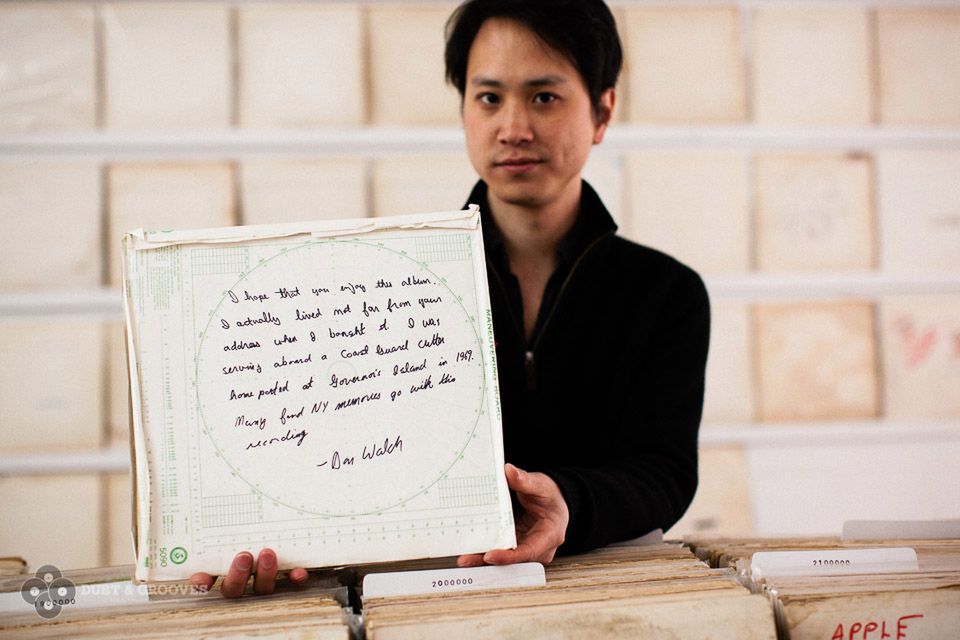 I hope that you enjoy this album.
I actually lived not far from your
address when I bought it. I was
serving aboard a Coast Guard Cutter
home ported at Governor's Island in 1969.
Many fond NY memories go with this
recording
- Don Walch
MANEUVERING BOARD
5090
DUST & GROOVES
1900000
2000000
2100000
APPLE